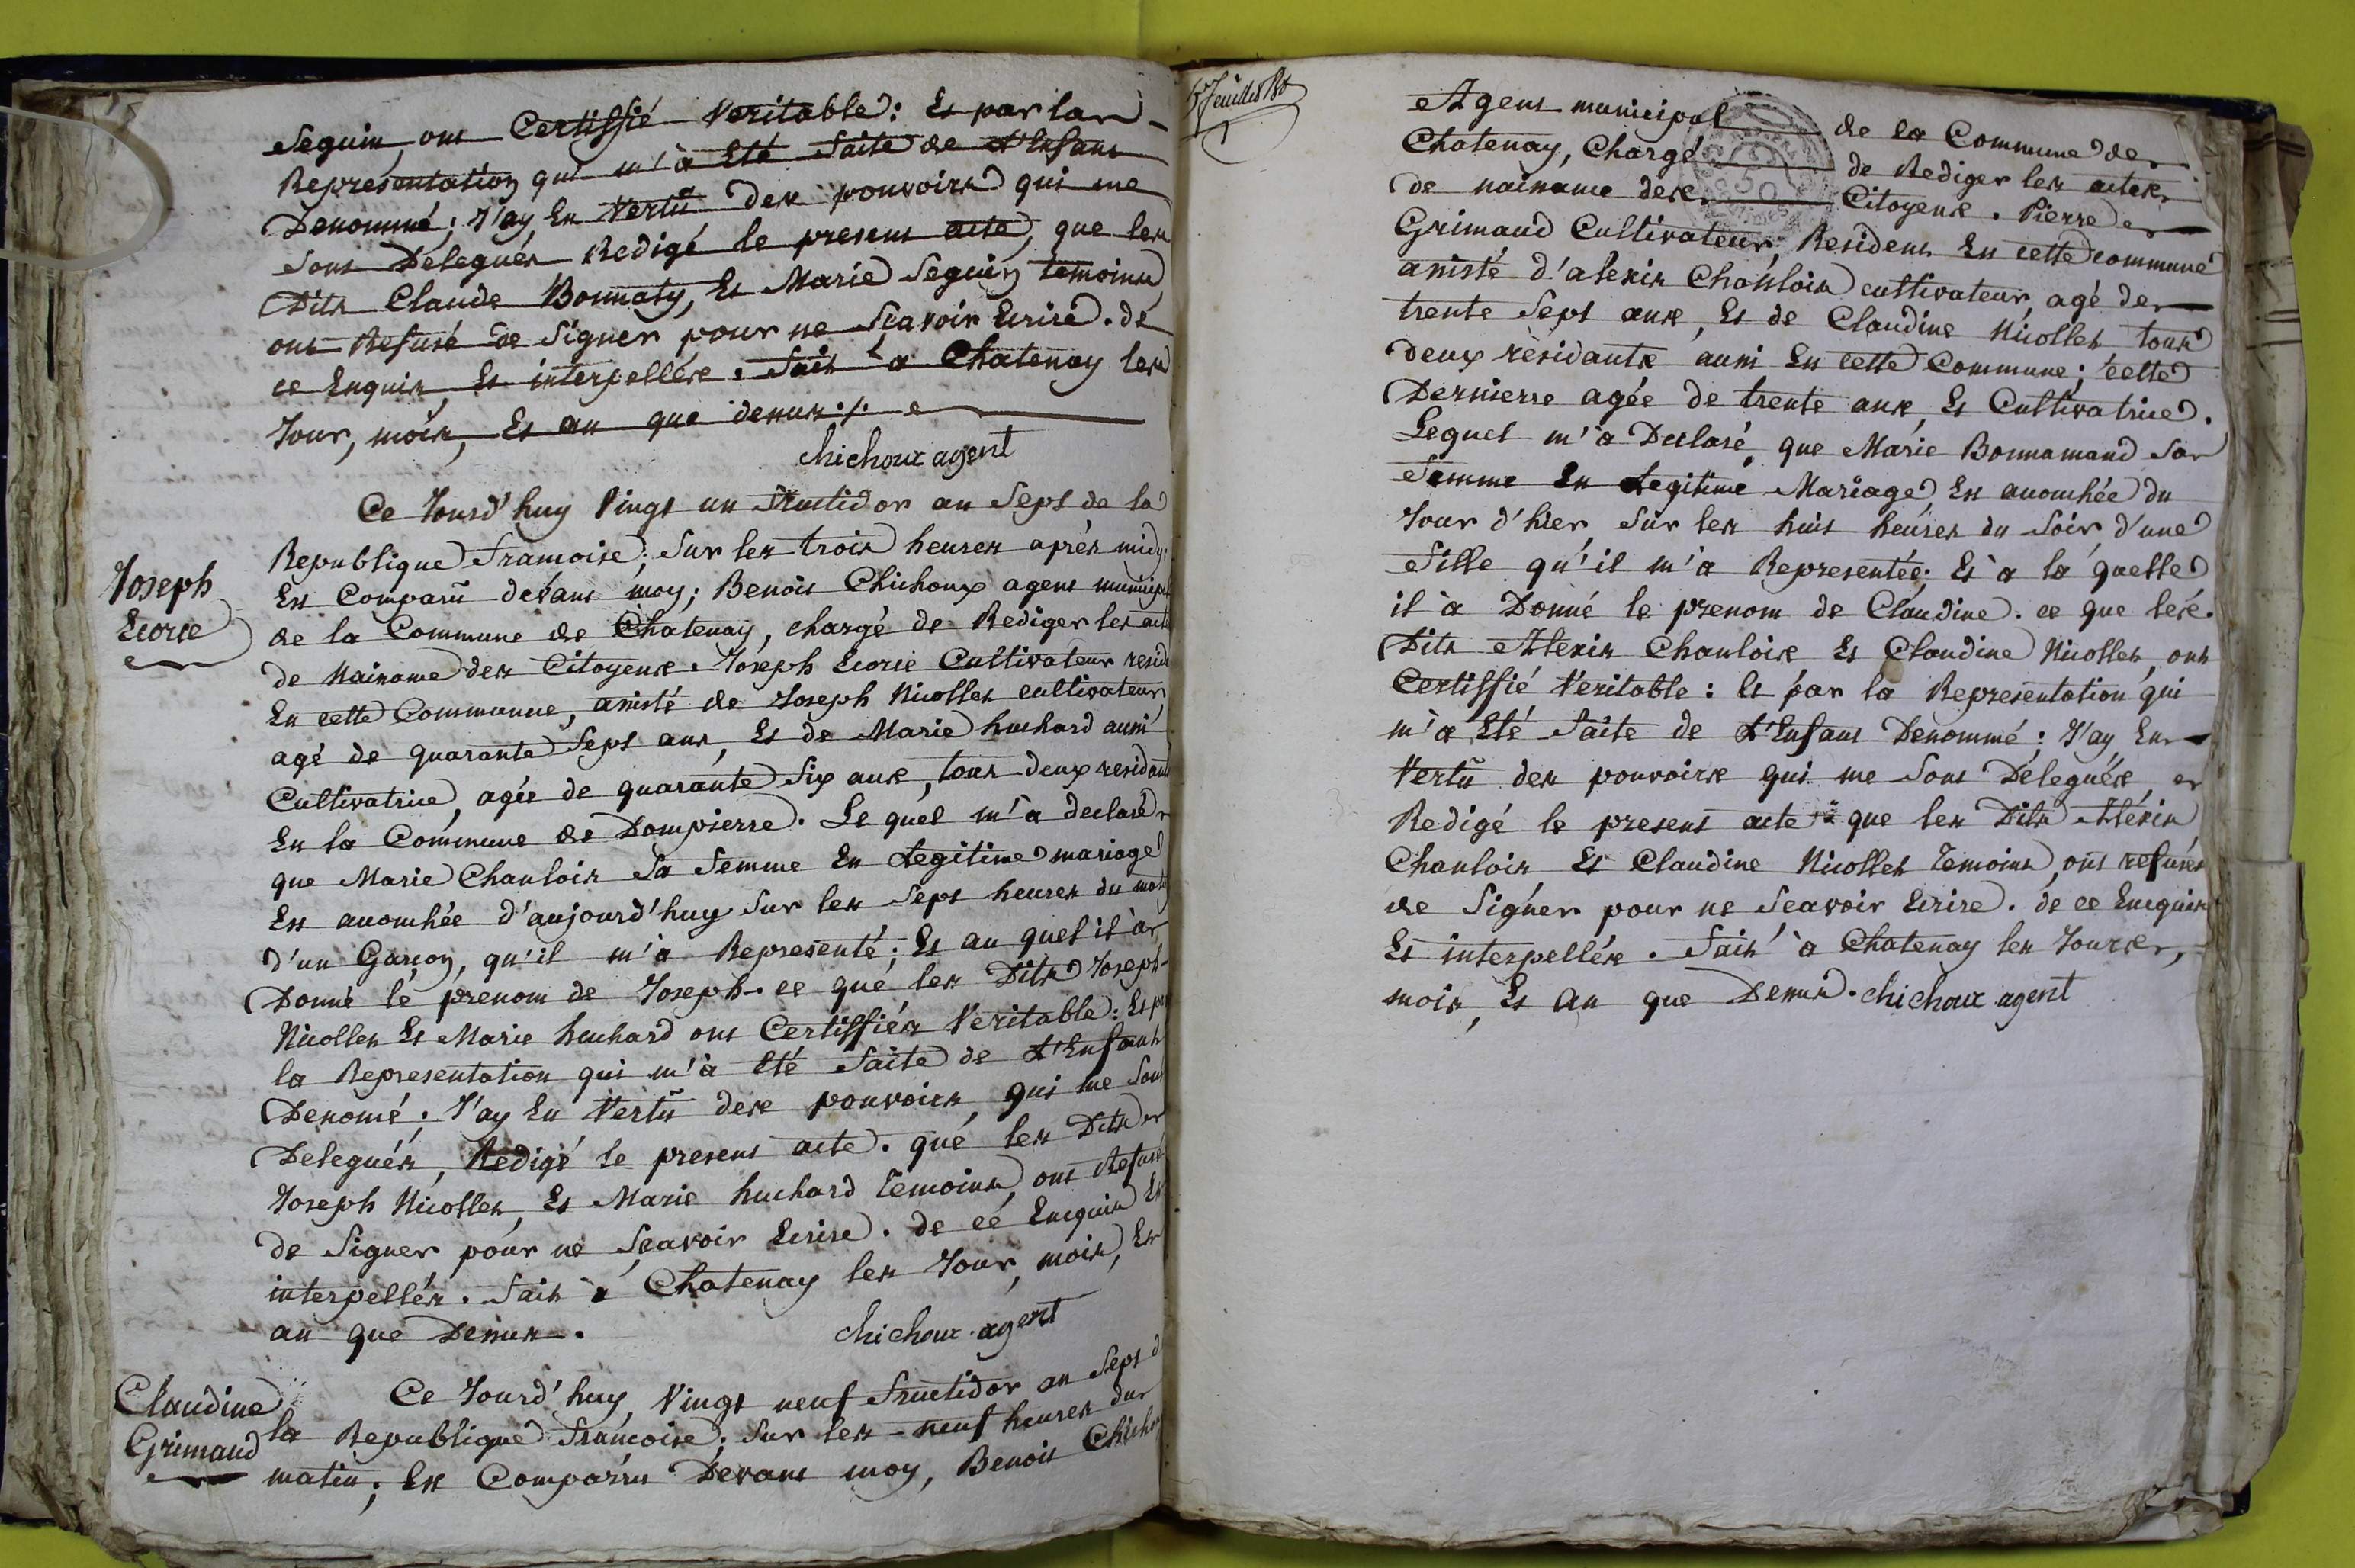 Seguin, ont Certiffié Veritable : Et par la
Representation qui m'à Eté faite de L'Enfant
Denommé ; J'ay, En Vertû des pouvoirs qui me
sont Délegués Redigé le present acte, que les
Dits Claude Bonnaty, Et Marie Seguin temoins
ont Refusé de Signer pour ne Sçavoir Ecrire. de
ce Enquis, Et interpellés. Fait à Chatenay les
Jour, mois, Et an que dessus ./.
chichoux agent
Ce Jourd'huy Vingt un Fructidor an Sept de la
Republique Françoise ; Sur les trois heures aprés midy ;
Joseph
Ecorie
Est Comparû devant moy ; Benoit Chichoux agent municip
de la Commune de Chatenay, chargé de Rediger les acte
de Naissance des Citoyens. Joseph Ecorie Cultivateur resid
En cette Commune, assisté de Joseph Nicollet cultivateur,
agé de quarante Sept ans, Et de Marie huchard aussi
Cultivatrice, agée de quarante Six ans, tous deux residant
En la Commune de Dompierre. Le quel m'à declaré
que Marie Chanlois Sa Femme En Legitime mariage
Est accouchée d'aujourd'huy Sur les Sept heures du mat
d'un Garçon, qu'il m'à Representé ; Et au quel il à
Donné le prenom de Joseph. ce que les Dits Joseph
Nicollet Et Marie huchard ont Certiffiés Veritable : Et pa
la Representation qui m'à Eté Faite de L'Enfant
Denomé ; J'ay En Vertû des pouvoirs, qui me Sont
Delegués, Redigé le present acte. que les Dits
Joseph Nicollet, Et Marie huchard Temoins, ont Refusé
de Signer pour ne Sçavoir Ecrire. de cé Encquis Et
interpellés. Fait à Chatenay les Jour, mois, Et
an que Dessus.
chichoux agent
Claudine
Grimaud
Ce Jourd'huy, Vingt neuf Fructidor an Sept d
la Republique Françoise ; Sur les neuf heures du
matin ; Est Comparru Devant moy, Benoit Chicho
5e Feuillet
Agent municipal de la Commune de
Chatenay, Chargé de Rediger les actes
de naissance des Citoyens. Pierre
Grimaud Cultivateur, Resident En cette commune
assisté d'alexis Chanlois cultivateur, agé de
trente Sept ans, Et de Claudine Nicollet tous
deux résidants aussi En cette Commune ; cette
Dernierre agée de trente ans, Et Cultivatrice.
Lequel m'à Declaré, que Marie Bonnamand Sa
Femme En Legitime Mariage, Est accouchée du
Jour d'hier, Sur les huit heures du Soir, d'une
Fille qu'il m'à Representée ; Et à la quelle
il à Donné le prenom de Claudine. ce que les
Dits Alexis Chanlois Et Claudine Nicollet, ont
Certiffié Veritable : Et par la Representation qui
m'à Eté Faite de L'Enfant Denommé ; J'ay En
Vertû des pouvoirs qui me Sont Délegués,
Redigé le present acte que les Dits Aléxis
Chanlois Et Claudine Nicollet Temoins, ont refusés
de Signer pour ne Scavoir Ecrire. de ce Encquis
Et interpellés. Fait à Chatenay les Jours,
mois, Et an que Dessus. chichoux agent